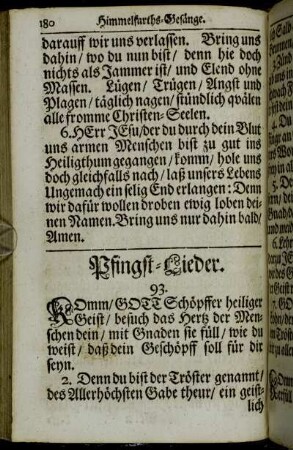 180 Himmelfarths-Gesänge.
darauff wir uns verlassen. Bring uns
dahin/ wo du nun bist/ denn hie doch
nichts als Jammer ist/ und Elend ohne
Massen. Lügen/ Trügen/ Angst und
Plagen/ täglich nagen/ stündlich qvälen
alle fromme Christen-Seelen.
6. HErr JEsu/ der du durch dein Blut
uns armen Menschen bist zu gut ins
Heiligthum gegangen/ komm/ hole uns
doch gleichfalls nach/ laß unsers Lebens
Ungemach ein selig End erlangen: Denn
wir dafür wollen droben ewig loben dei-
nen Namen. Bring uns nur dahin bald/
Amen.
Pfingst-Lieder.
93.
KOmm/ GOTT Schöpffer heiliger
Geist/ besuch das Hertz der Men-
schen dein/ mit Gnaden sie füll/ wie du
weist/ daß dein Geschöpff soll für dir
seyn.
2. Denn du bist der Tröster genannt/
des Allerhöchsten Gabe theur/ ein geist-
lich